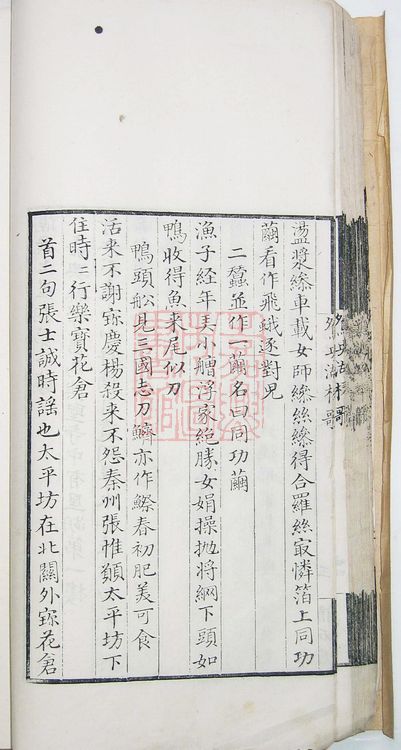 盪漿繰車載女師繰絲繰得合羅絲㝡憐箔上同功
繭看作飛蛾逐對兒
二蠶並作一繭名曰同功繭
漁子经年弄小艚浮家絕勝女娟操抛将網下頭如
鴨收得魚来尾似刀
鴨頭舩見三國志刀鱭亦作鮤春初肥美可食
活来不謝寳慶楊殺来不怨秦州張惟願太平坊下
住時二行樂寳花倉
首二句張士誠時謡也太平坊在北關外寳花倉